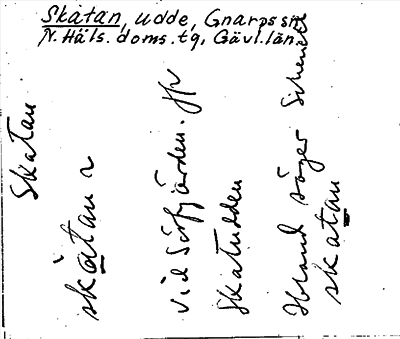 Skatan, udde, Gnarps sn
N. Häls. doms. tg, Gävl. län.
Skatan
skàtan ~
vid Sörfjärden. Jfr
Skatudden
Ibland säger
skatan